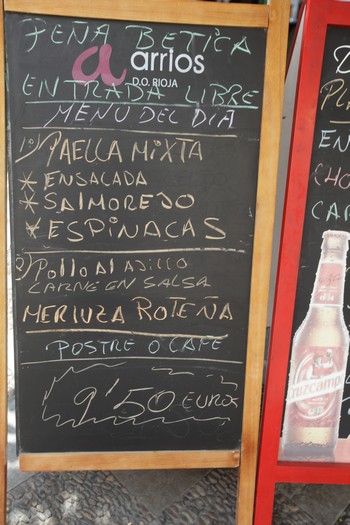 PEÑA BETICA
a arrios
D.O. RIOJA
ENTRADA LIBRE
MENU DEL DIA
1º) PAELLA MIXTA
* ENSALADA
* SALMOREJO
* ESPINACAS
2) POLLO AL AJILLO
CARNE EN SALSA
MERLUZA ROTEÑA
POSTRE O CAFE
9'50 EUROS
EN
CHO
CAR
uzcampo